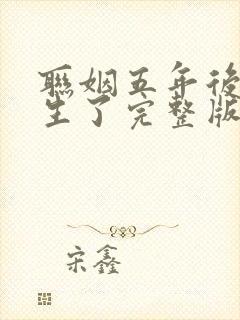 聯姻五年後
生了完整版
宋鑫